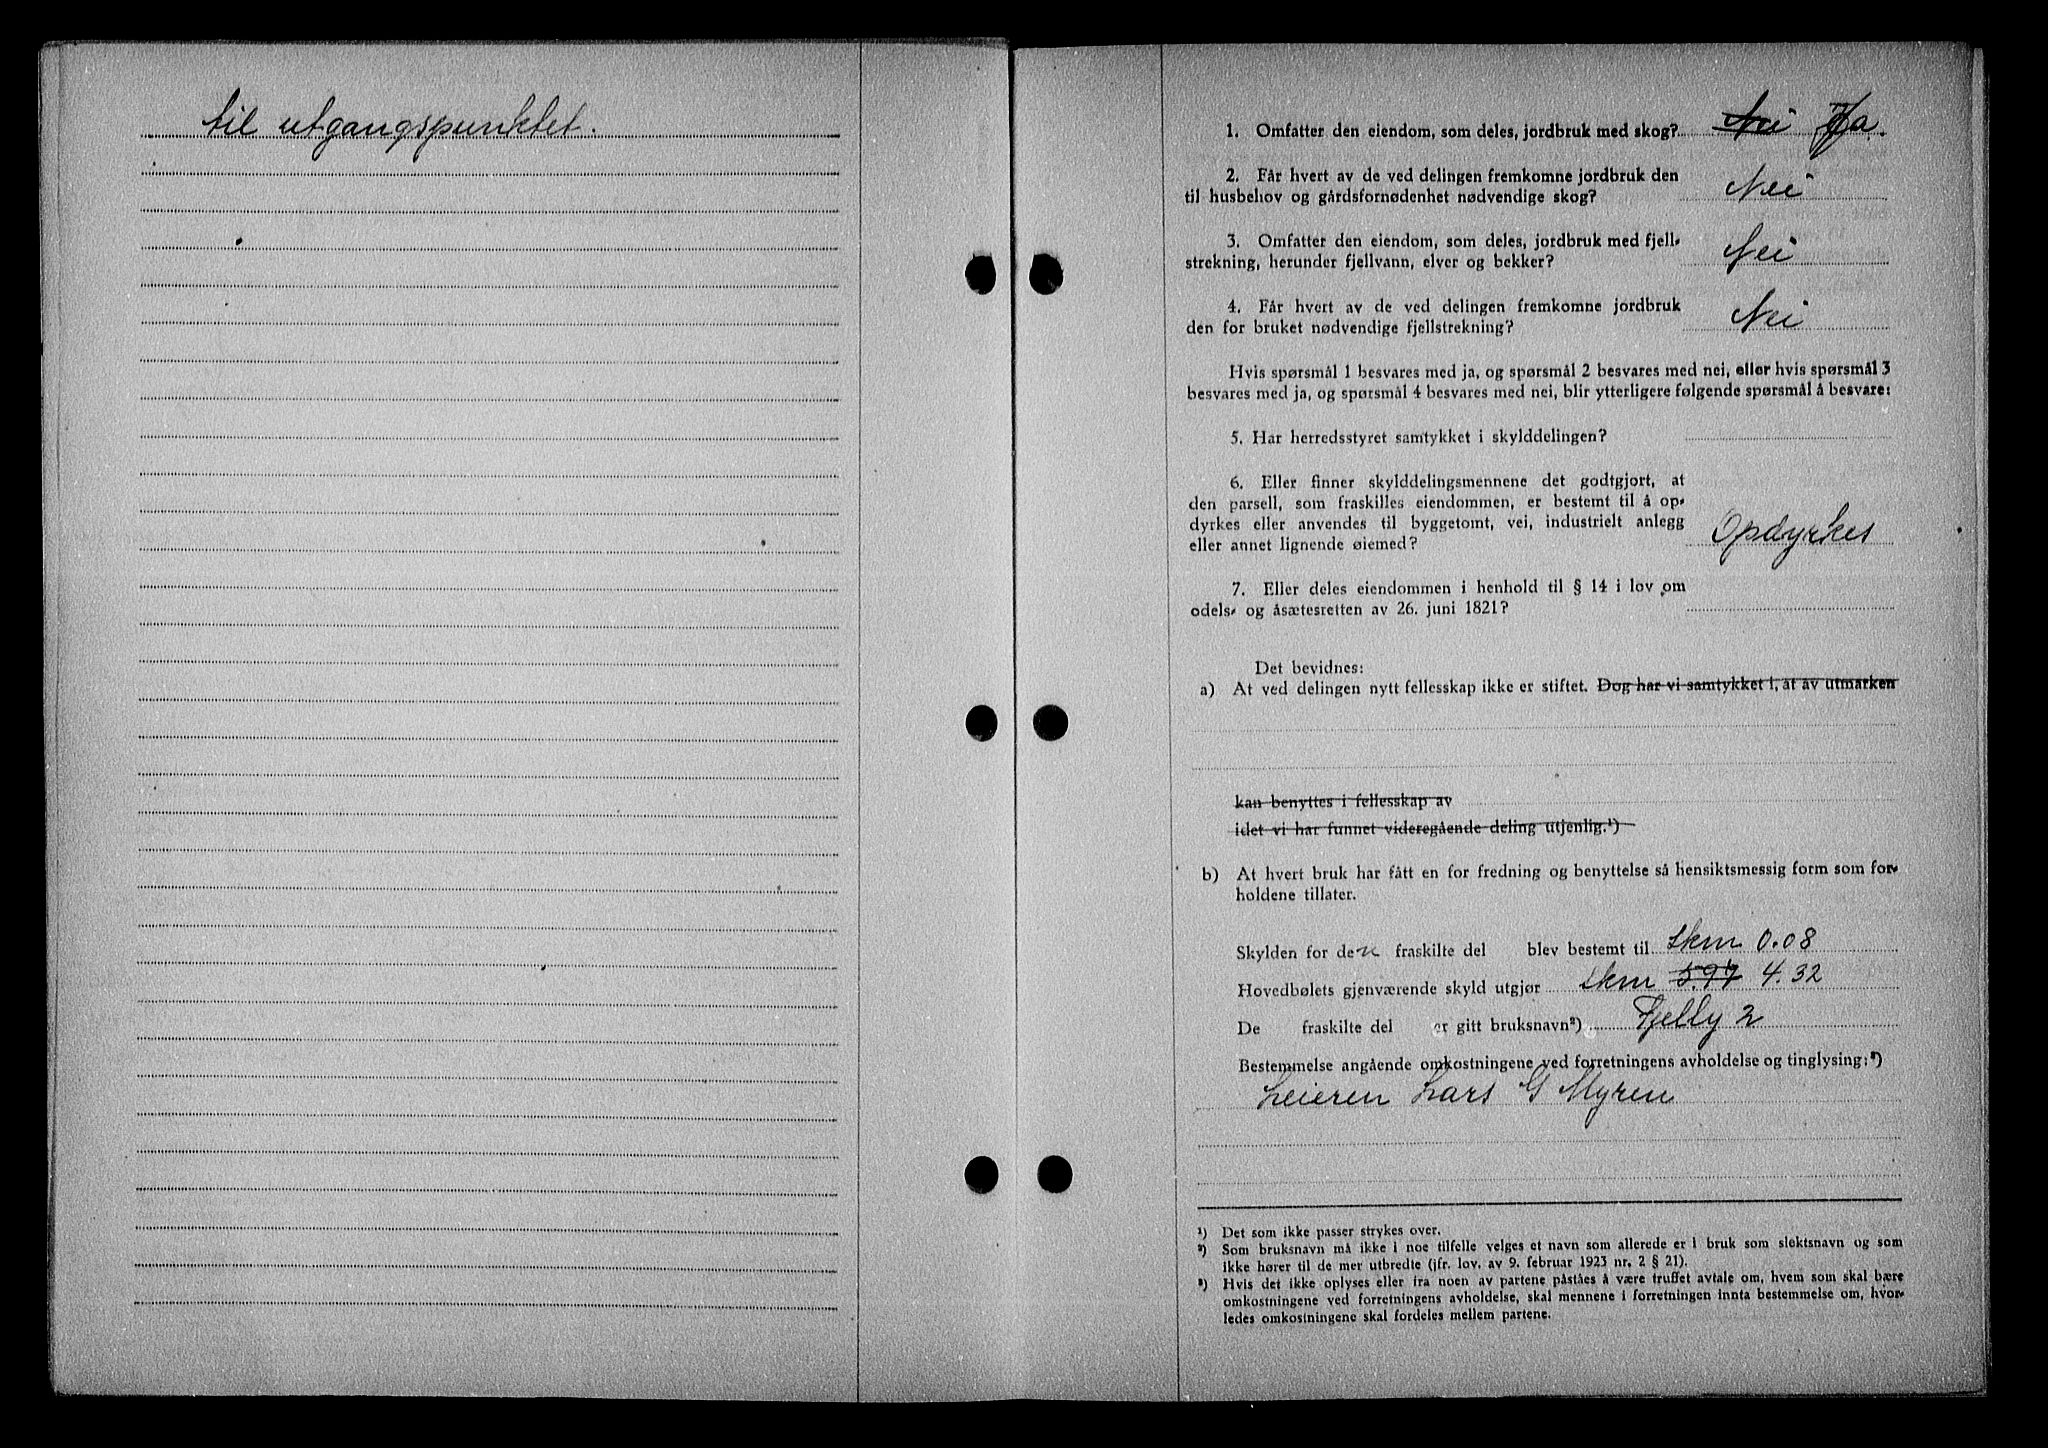 til utgangspunktet.
1. Omfatter den eiendom, som deles, jordbruk med skog? Nei Ja.
2. Får hvert av de ved delingen fremkomne jordbruk den
til husbehov og gårdsfornødenhet nødvendige skog? Nei
3. Omfatter den eiendom, som deles, jordbruk med fjell-
strekning, herunder fjellvann, elver og bekker? Nei
4. Får hvert av de ved delingen fremkomne jordbruk
den for bruket nødvendige fjellstrekning? Nei
Hvis spørsmål 1 besvares med ja, og spørsmål 2 besvares med nei, eller hvis spørsmål 3
besvares med ja, og spørsmål 4 besvares med nei, blir ytterligere følgende spørsmål å besvare:
5. Har herredsstyret samtykket i skylddelingen?
6. Eller finner skylddelingsmennene det godtgjort, at
den parsell, som fraskilles eiendommen, er bestemt til å op-
dyrkes eller anvendes til byggetomt, vei, industrielt anlegg
eller annet lignende øiemed? Opdyrkes
7. Eller deles eiendommen i henhold til § 14 i lov om
odels- og åsætesretten av 26. juni 1821?
Det bevidnes:
a) At ved delingen nytt fellesskap ikke er stiftet. Dog har vi samtykket i, at av utmarken
kan benyttes i fellesskap av
idet vi har funnet videregående deling utjenlig.¹)
b) At hvert bruk har fått en for fredning og benyttelse så hensiktsmessig form som for-
holdene tillater.
Skylden for den fraskilte del blev bestemt til skm 0.08
Hovedbølets gjenværende skyld utgjør skm 5.97 4.32
De fraskilte del er gitt bruksnavn²) Fjelly 2
Bestemmelse angående omkostningene ved forretningens avholdelse og tinglysing:³)
Leieren Lars G Myren
¹) Det som ikke passer strykes over.
²) Som bruksnavn må ikke i noe tilfelle velges et navn som allerede er i bruk som slektsnavn og som
ikke hører til de mer utbredte (jfr. lov. av 9. februar 1923 nr. 2 § 21).
³) Hvis det ikke oplyses eller fra noen av partene påståes å være truffet avtale om, hvem som skal bære
omkostningene ved forretningens avholdelse, skal mennene i forretningen innta bestemmelse om, hvor-
ledes omkostningene skal fordeles mellem partene.